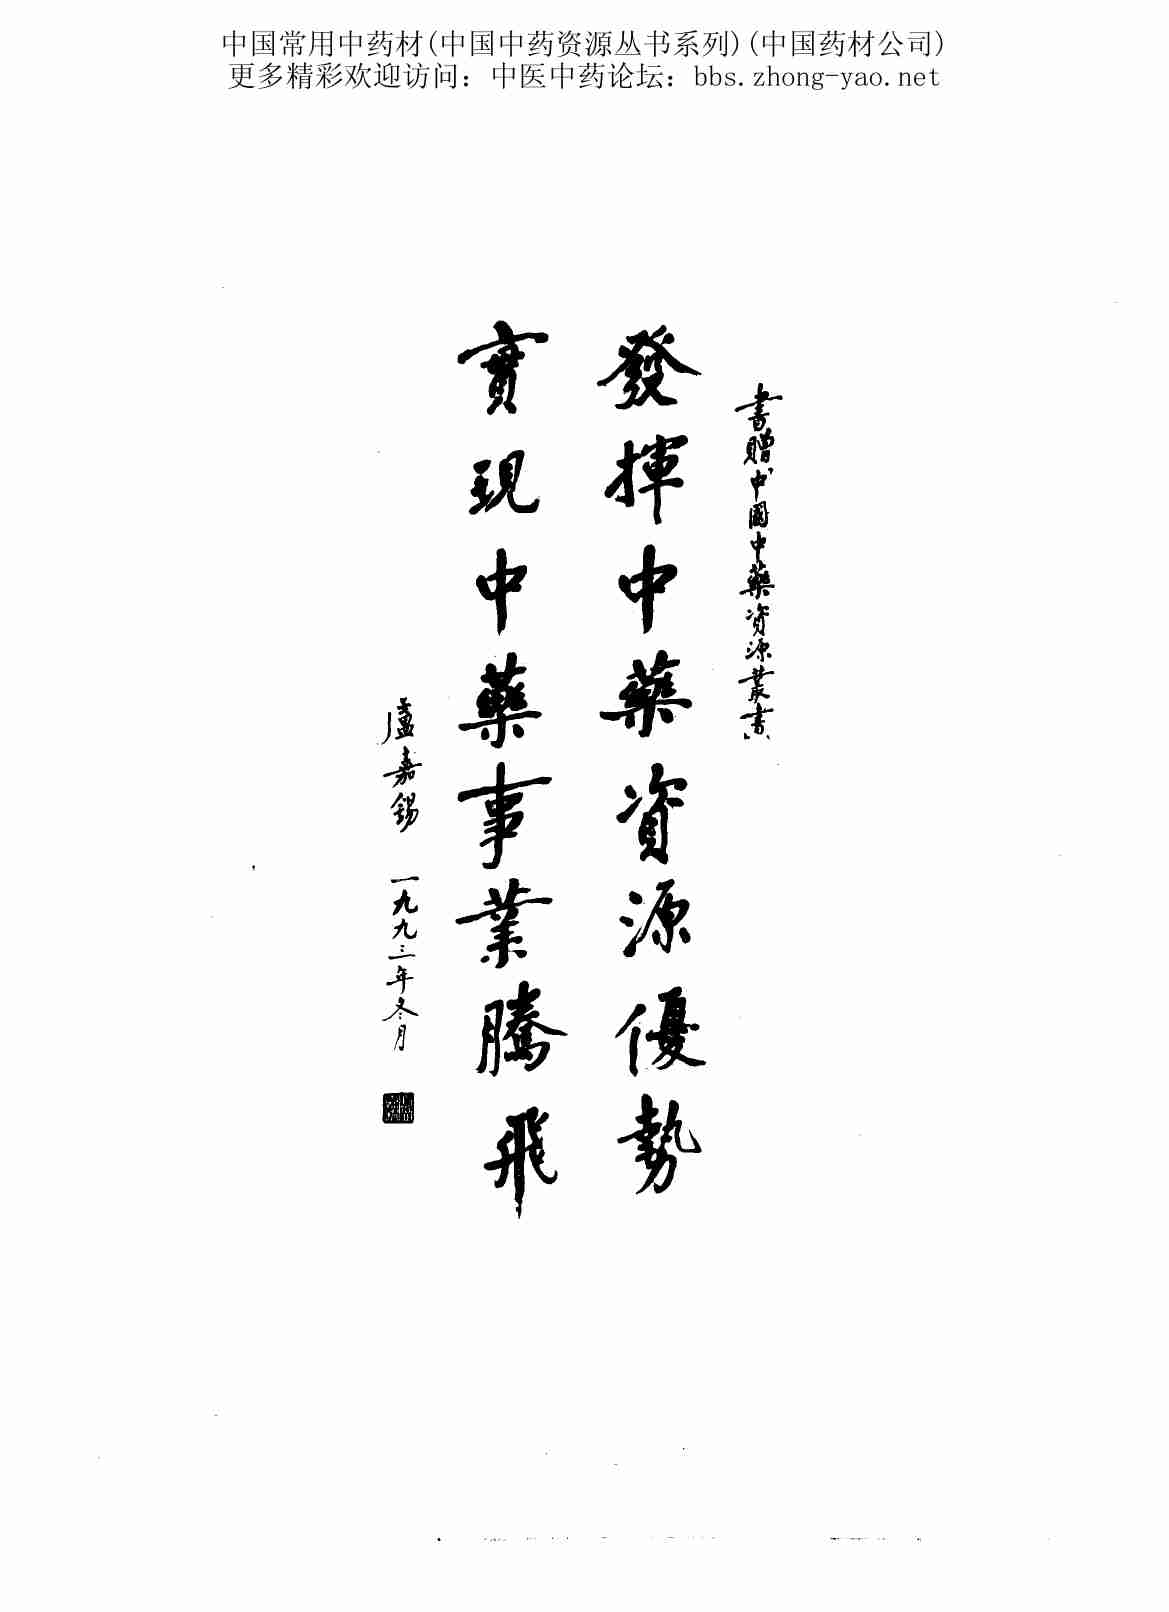 中国常用中药材(中国中药资源丛书系列)(中国药材公司)
更多精彩欢迎访问：中医中药论坛：bbs.zhong-yao.net
書贈「中國中藥資源叢書」
發揮中藥資源優勢
實現中藥事業騰飛
盧嘉錫 一九九三年冬月